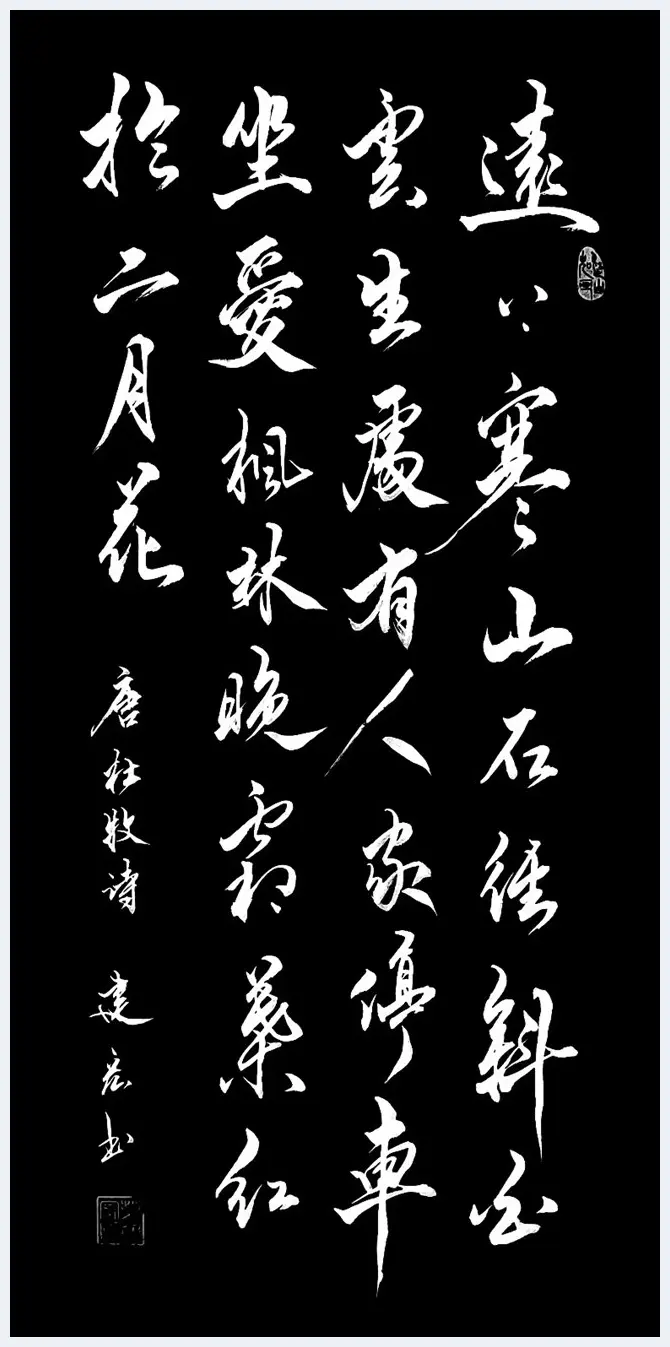 遠上寒山石徑斜白
雲生處有人家停車
坐愛楓林晚霜葉红
於二月花 唐杜牧诗 建宏书